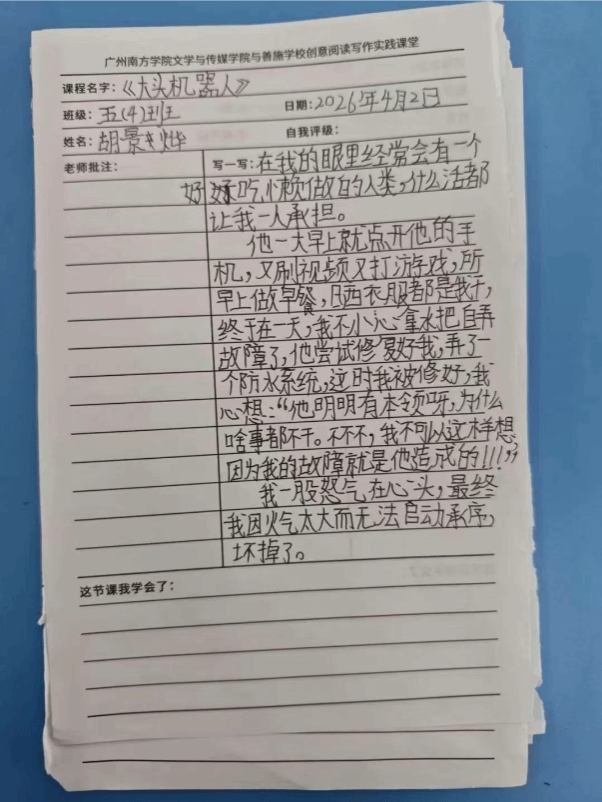 广州南方学院文学与传媒学院与善施学校创意阅读写作实践课堂
课程名字：《大头机器人》
班级：五(4)班 日期：2026年4月2日
姓名：胡景烨 自我评级：
老师批注： 写一写：在我的眼里经常会有一个
好吃懒做的人类，什么活都
让我一人承担。
他一大早上就点开他的手
机，又刷视频又打游戏，所
早上做早餐，晒衣服都是我干，
终于在一天，我不小心拿水把自弄
故障了，他尝试修复好我，弄了一
个防水系统，这时我被修好，我
心想：“他明明有本领呀，为什么
啥事都不干。不不不，我不可以这样想，
因为我的故障就是他造成的！！！”
我一股怒气在心头，最终
我因火气太大而无法启动承序，
坏掉了。
这节课我学会了：